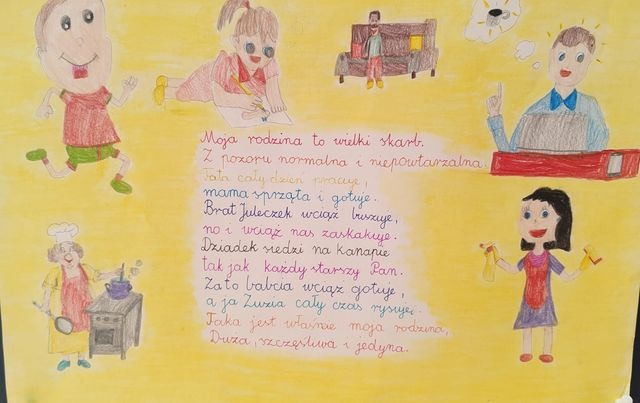 Moja rodzina to wielki skarb.
Z pozoru normalna i niepowtarzalna.
Tata cały dzień pracuje,
mama sprząta i gotuje.
Brat Juleczek wciąż buszuje,
no i wciąż nas zaskakuje.
Dziadek siedzi na kanapie
tak jak każdy starszy Pan.
Za to babcia wciąż gotuje,
a ja Zuzia cały czas rysuję.
Taka jest właśnie moja rodzina,
Duża, szczęśliwa i jedyna.